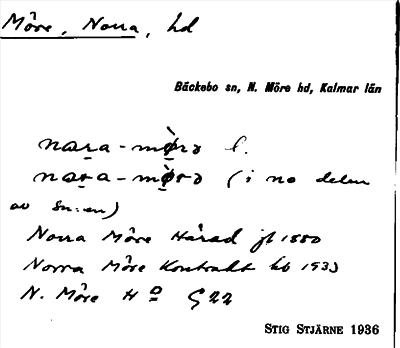 Möre, Norra, hd
Bäckebo sn, N. Möre hd, Kalmar län
nara-mørə l.
nara-mørə (i no delen
av sn:en)
Norra Möre Härad jb 1880
Norra Möre Kontrakt kb 1933
N. Möre H⁰ G22
STIG STJÄRNE 1936